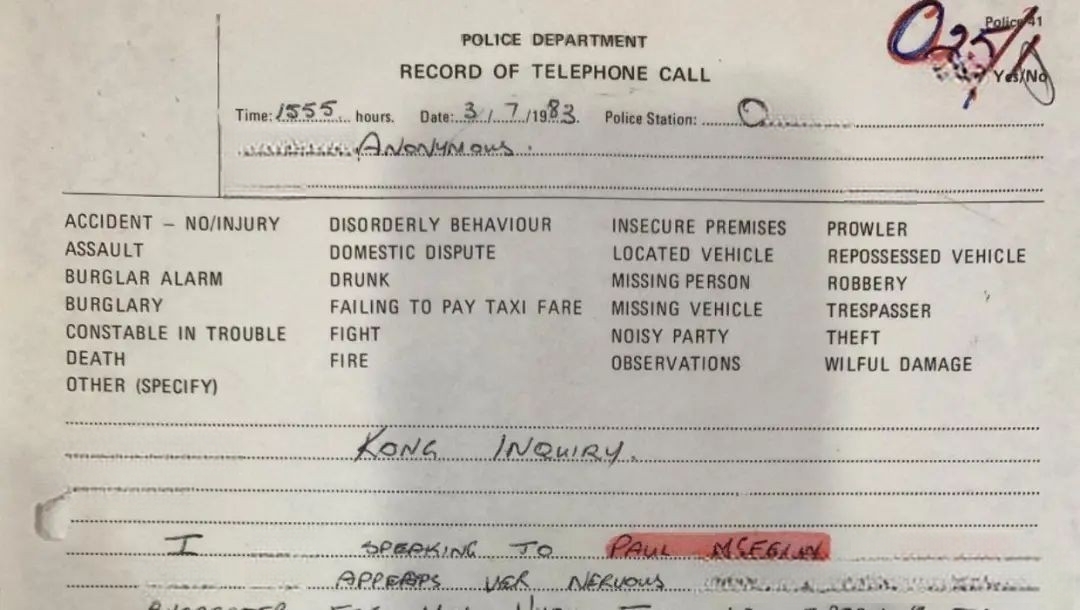 Police 41
025/
Yes/No
POLICE DEPARTMENT
RECORD OF TELEPHONE CALL
Time: 1555 hours. Date: 3/7/1983. Police Station: O
ANONYMOUS.
ACCIDENT – NO/INJURY DISORDERLY BEHAVIOUR INSECURE PREMISES PROWLER
ASSAULT DOMESTIC DISPUTE LOCATED VEHICLE REPOSSESSED VEHICLE
BURGLAR ALARM DRUNK MISSING PERSON ROBBERY
BURGLARY FAILING TO PAY TAXI FARE MISSING VEHICLE TRESPASSER
CONSTABLE IN TROUBLE FIGHT NOISY PARTY THEFT
DEATH FIRE OBSERVATIONS WILFUL DAMAGE
OTHER (SPECIFY)
KONG INQUIRY.
I SPEAKING TO PAUL
VER NERVOUS